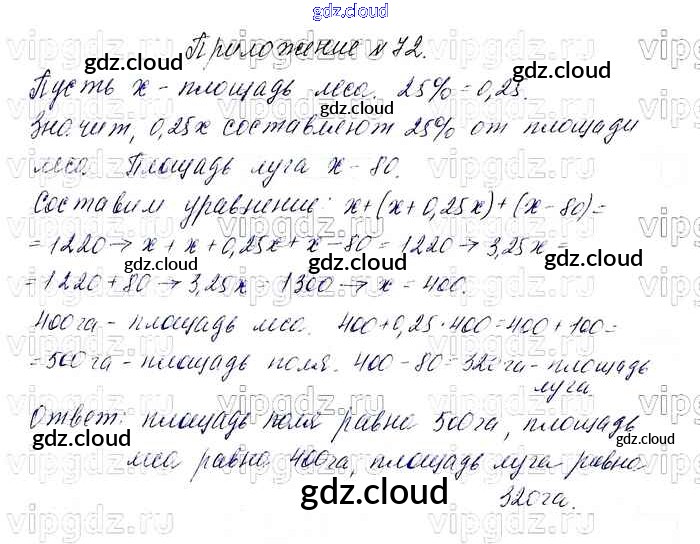 gdz.cloud
Приложение №72.
Пусть x - площадь леса. 25% = 0,25.
Значит, 0,25x составляют 25% от площади
леса. Площадь луга x - 80.
Составим уравнение: x+(x+0,25x)+(x-80)=
=1220→ x+x+0,25x+x-80=1220→3,25x=
=1220+80→3,25x=1300→x=400.
400га - площадь леса. 400+0,25·400=400+100=
=500га - площадь поля. 400-80=320га - площадь
луга
Ответ: площадь поля равна 500га, площадь
леса равна 400га, площадь луга равна
320га.
gdz.cloud